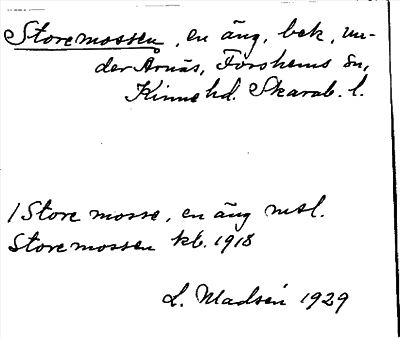 Storemossen, en äng, bek, un-
der Årnäs, Forshems sn,
Kinne hd. Skarab. l.
/Store mosse, en äng mtl.
Storemossen kb. 1918
L. Madsén 1929